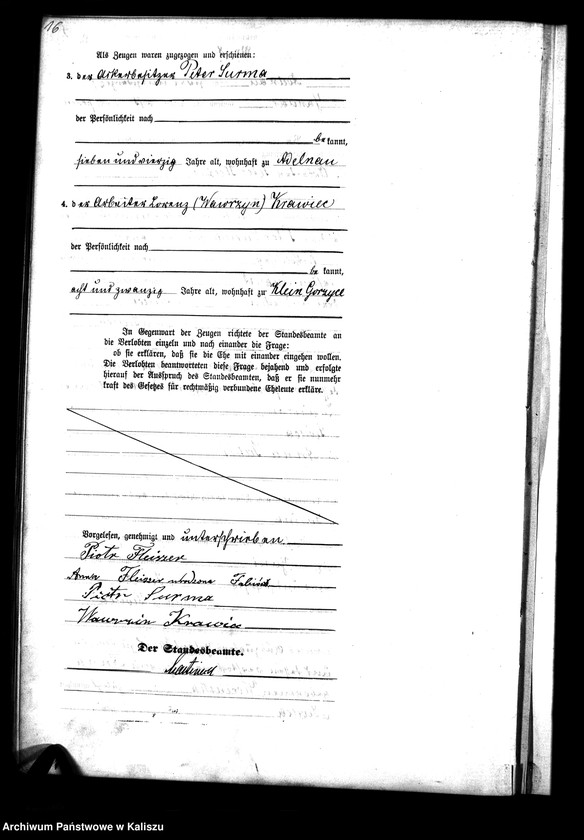 16
Als Zeugen waren zugezogen und erschienen:
3. der Ackerbesitzer Peter Surma
der Persönlichkeit nach
be kannt,
sieben und vierzig Jahre alt, wohnhaft zu Adelnau
4. der Arbeiter Lorenz (Wawrzyn) Krawiec
der Persönlichkeit nach
be kannt,
acht und zwanzig Jahre alt, wohnhaft zu Klein Gorzyce
In Gegenwart der Zeugen richtete der Standesbeamte an
die Verlobten einzeln und nach einander die Frage:
ob sie erklären, daß sie die Ehe mit einander eingehen wollen.
Die Verlobten beantworteten diese Frage bejahend und erfolgte
hierauf der Ausspruch des Standesbeamten, daß er sie nunmehr
kraft des Gesetzes für rechtmäßig verbundene Eheleute erkläre.
Vorgelesen, genehmigt und unterschrieben
Piotr Fleiszer
Anna Fleiszer
Piotr Surma
Wawrzin Krawiec
Der Standesbeamte.
Archiwum Państwowe w Kaliszu